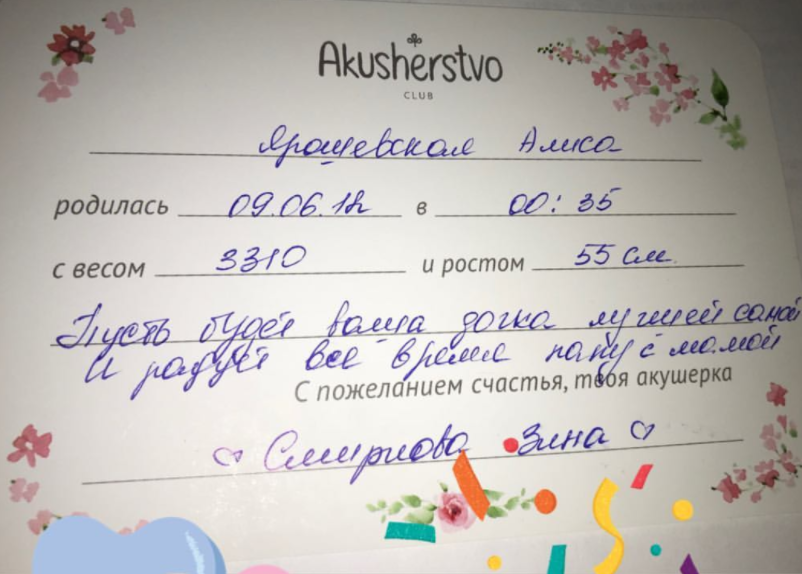 Akusherstvo
CLUB
Ярошевская Алиса
родилась 09.06.18г в 00:35
с весом 3310 и ростом 55 см
Пусть будет ваша дочка лучшей самой
И радует все время папу с мамой
С пожеланием счастья, твоя акушерка
Смирнова Зина